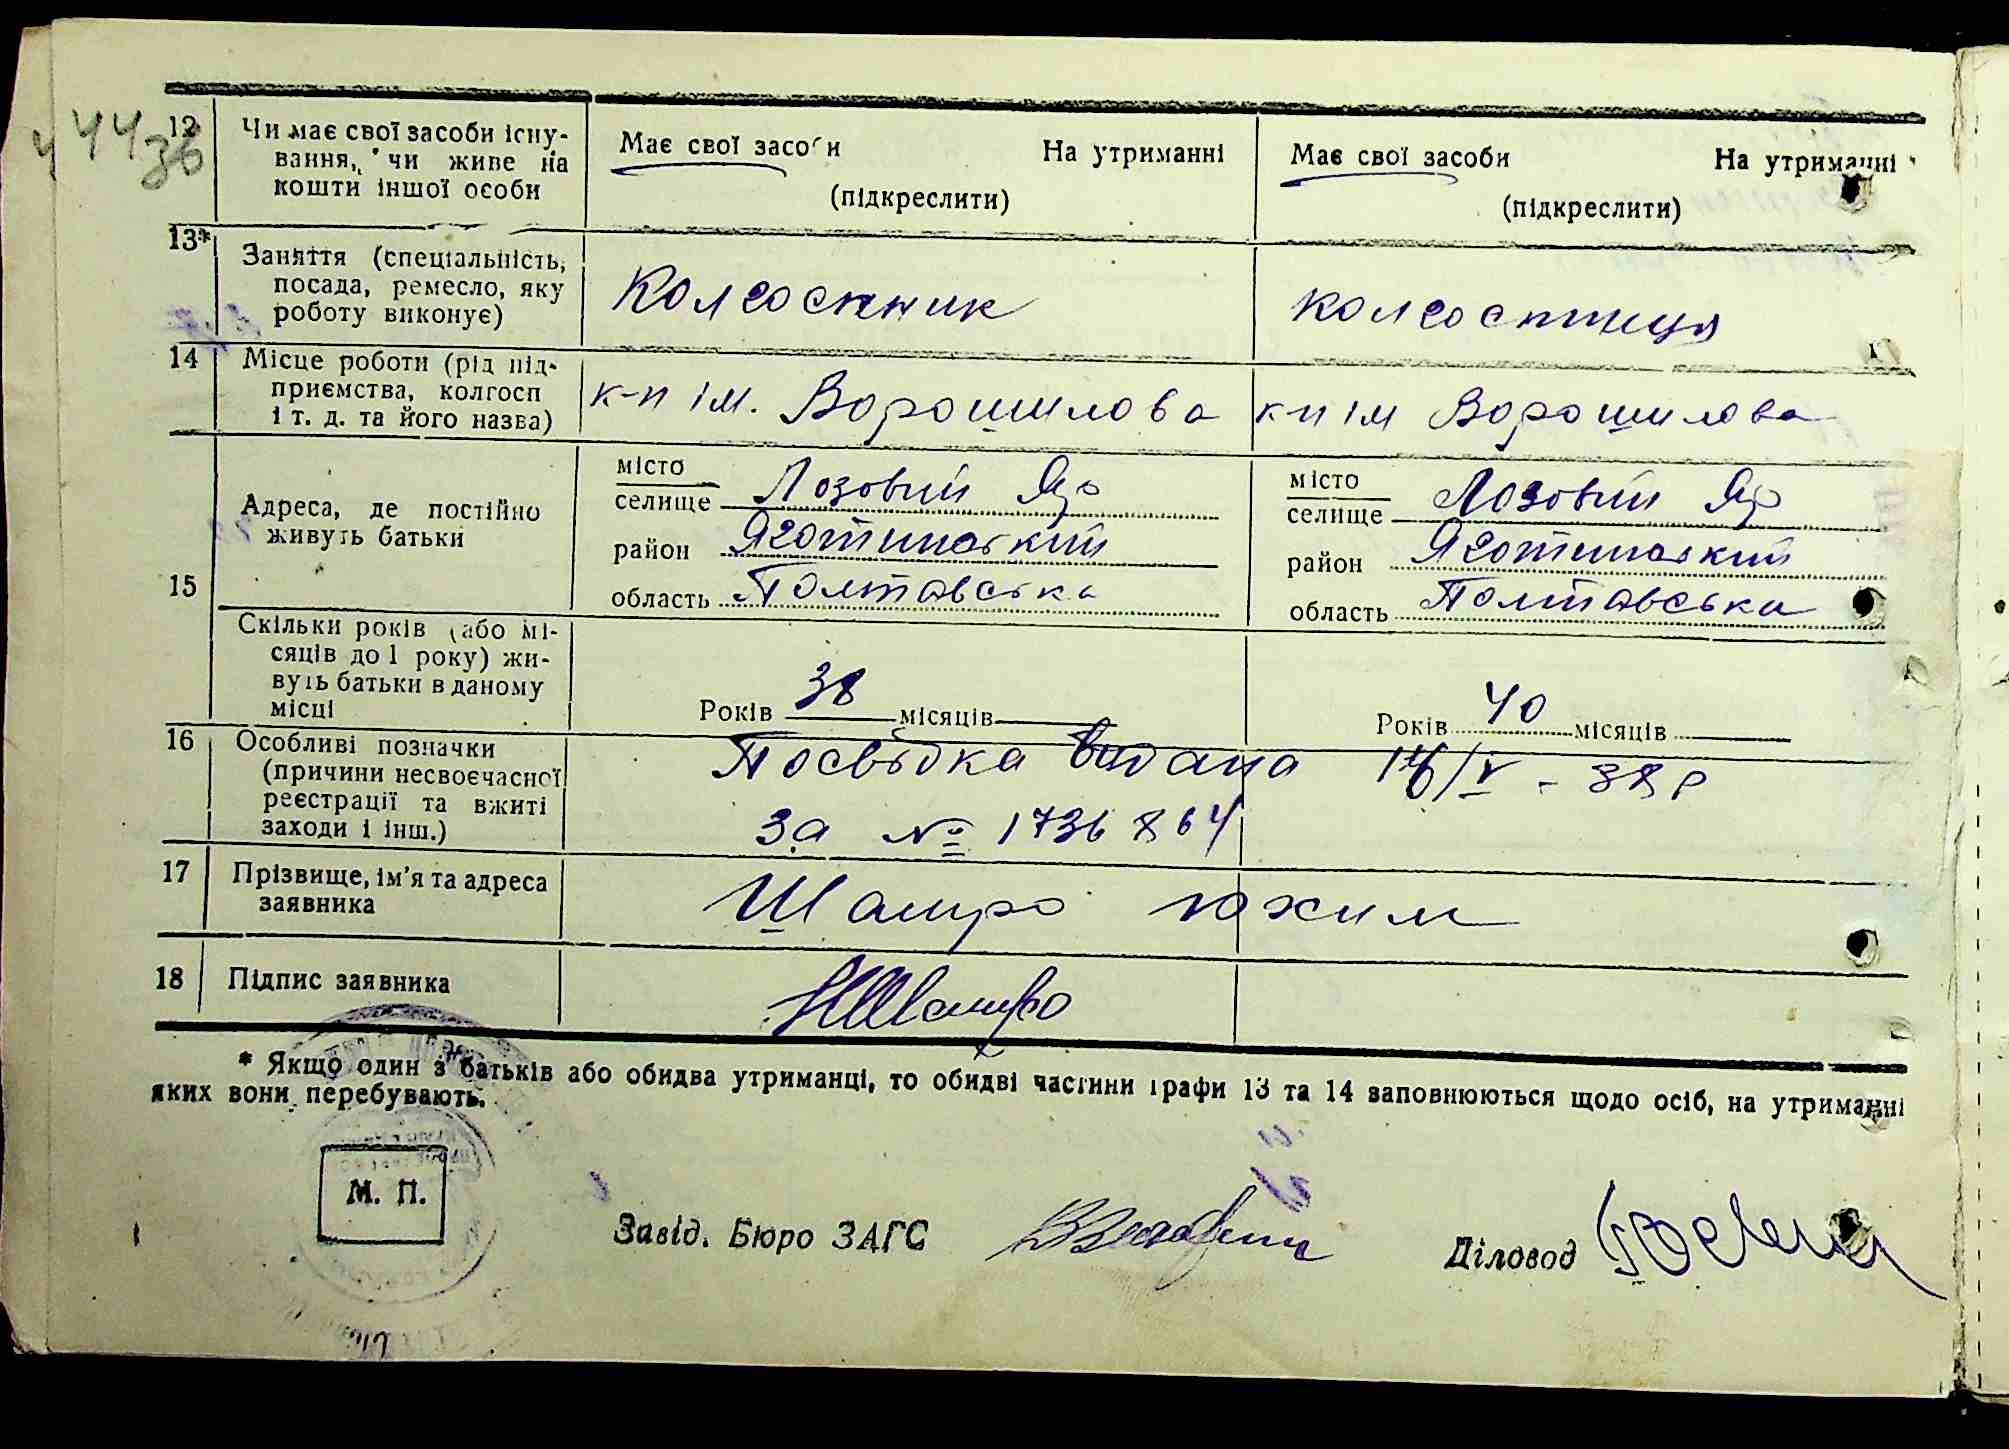 12 Чи має свої засоби існу-
вання, чи живе на
кошти іншої особи
Має свої засоби На утриманні
(підкреслити)
Має свої засоби На утриманні
(підкреслити)
13* Заняття (спеціальність,
посада, ремесло, яку
роботу виконує)
Колгоспник
колгоспниця
14 Місце роботи (рід під-
приємства, колгосп
і т. д. та його назва)
к-п ім. Ворошилова
к-п ім Ворошилова
15 Адреса, де постійно
живуть батьки
місто
селище Лозовий Яр
район Яготинський
область Полтавська
місто
селище Лозовий Яр
район Яготинський
область Полтавська
Скільки років (або мі-
сяців до 1 року) жи-
вуть батьки в даному
місці
Років 38 місяців
Років 40 місяців
16 Особливі позначки
(причини несвоєчасної
реєстрації та вжиті
заходи і інш.)
Посвідка видана /V - 38 р
За № 1736864
17 Прізвище, ім'я та адреса
заявника
Шамро Юхим
18 Підпис заявника
Шамро
* Якщо один з батьків або обидва утриманці, то обидві частини графи 13 та 14 заповнюються щодо осіб, на утриманні
яких вони перебувають.
М. П.
Завід. Бюро ЗАГС
Діловод